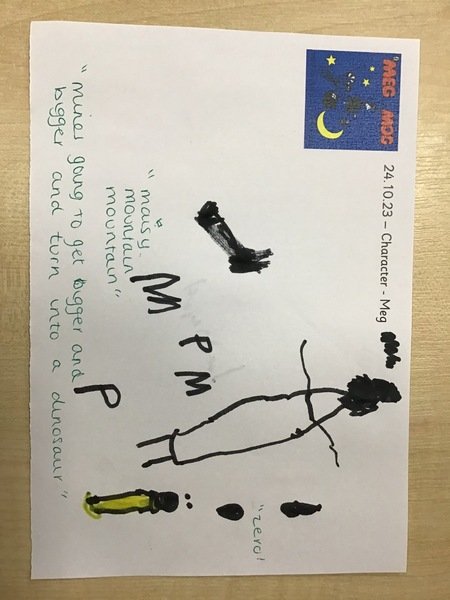 MEG MOG
24.10.23 – Character - Meg
"zero!
P M
M
"maisy.
mountain
mountain"
P
"mines going to get bigger and
bigger and turn into a dinosaur"